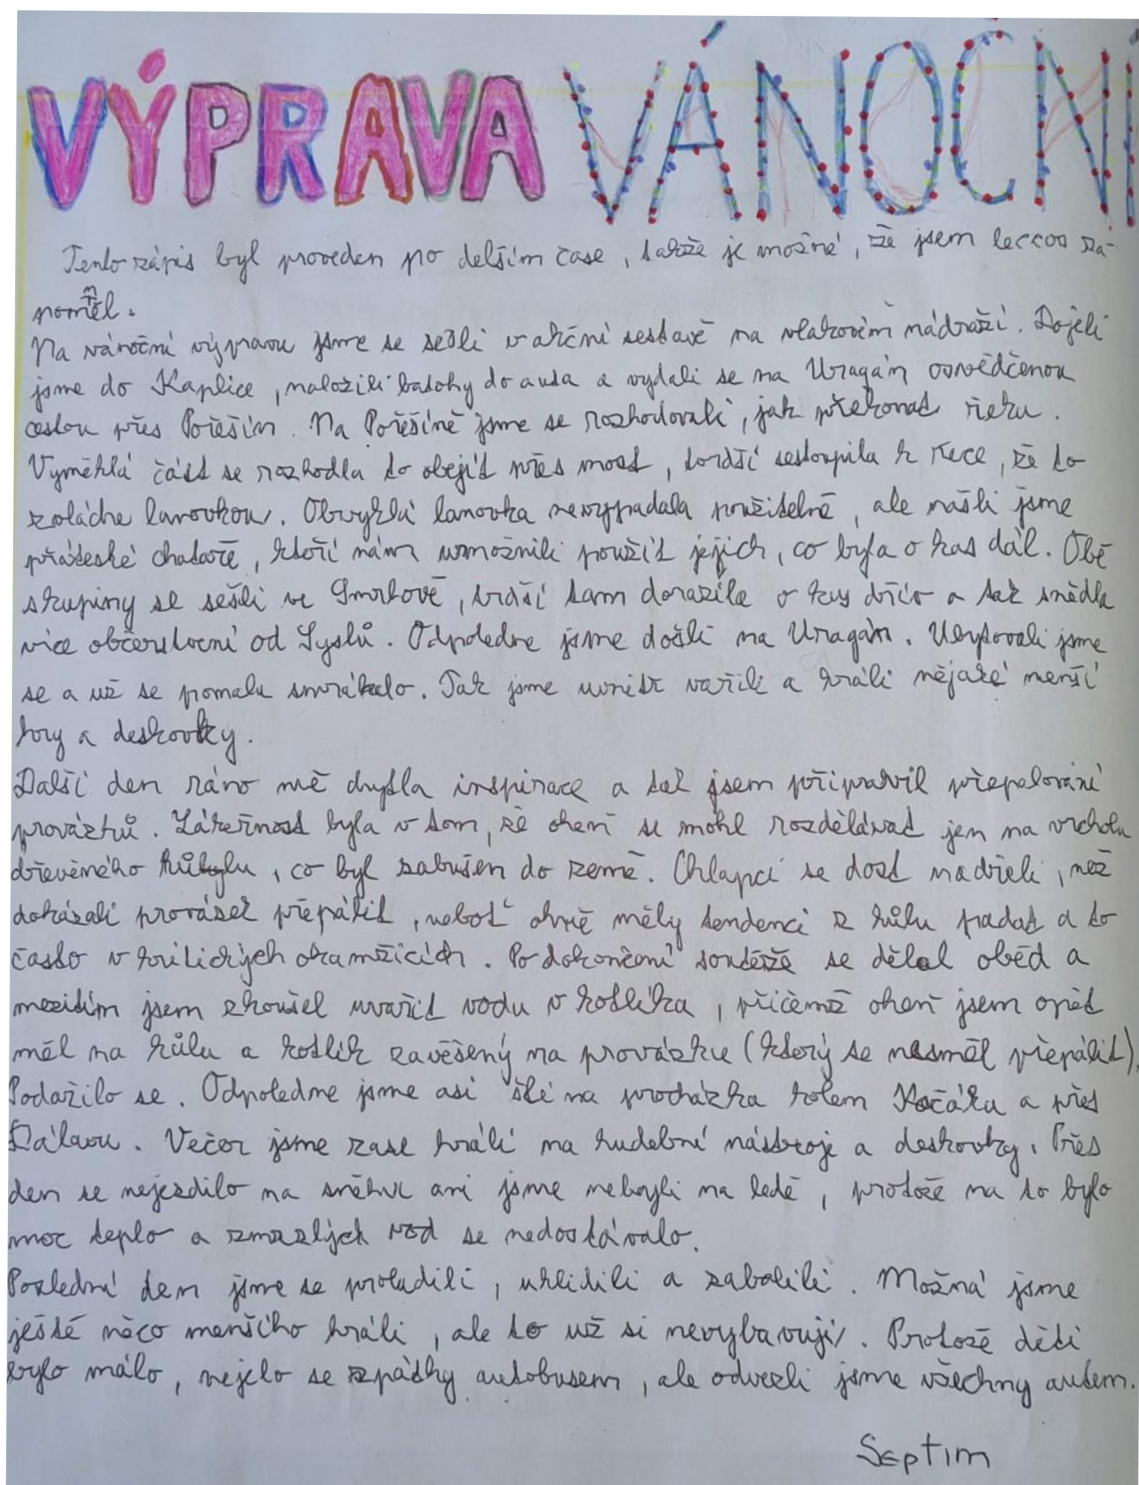 VÝPRAVA VÁNOČNÍ
Tento zápis byl proveden po delším čase, takže je možné, že jsem leccos za-
pomněl.
Na vánoční výpravu jsme se sešli v akční sestavě na vlakovém nádraží. Dojeli
jsme do Kaplice, naložili batohy do auta a vydali se na Uragán osvědčenou
cestou přes Pořešín. Na Pořešíně jsme se rozhodovali, jak překonat řeku.
Vyměklá část se rozhodla to obejít přes most, tvrdší sestoupila k řece, že to
zvládne lanovkou. Obvyklá lanovka nevypadala použitelně, ale našli jsme
přátelské chataře, kteří nám umožnili použít jejich, co byla o kus dál. Obě
skupiny se sešli ve Smrhově, tvrdší tam dorazila o kus dřív a tak snědla
více občerstvení od Syslů. Odpoledne jsme došli na Uragán. Ubytovali jsme
se a už se pomalu smrákalo. Tak jsme uvnitř vařili a hráli nějaké menší
hry a deskovky.
Další den ráno mě chytla inspirace a tak jsem připravil přepalování
provázků. Zákeřnost byla v tom, že oheň se mohl rozdělávat jen na vrcholu
dřevěného kůlu, co byl zabušen do země. Chlapci se dost nadřeli, než
dokázali provázek přepálit, neboť ohně měly tendenci z kůlu padat a to
často v kritických okamžicích. Po dokončení soutěže se dělal oběd a
mezitím jsem zkoušel uvařit vodu v kotlíku, přičemž oheň jsem opět
měl na kůlu a kotlík zavěšený na provázku (který se nesměl přepálit).
Podařilo se. Odpoledne jsme asi šli na procházku kolem Kočáku a přes
Dálavu. Večer jsme zase hráli na hudební nástroje a deskovky. Přes
den se nejezdilo na sněhu ani jsme nebyli na ledě, protože na to bylo
moc teplo a zmrzlých vod se nedostávalo.
Poslední den jsme se probudili, uklidili a zabalili. Možná jsme
ještě něco menšího hráli, ale to už si nevybavuji. Protože dětí
bylo málo, nejelo se zpátky autobusem, ale odvezli jsme všechny autem.
Septim